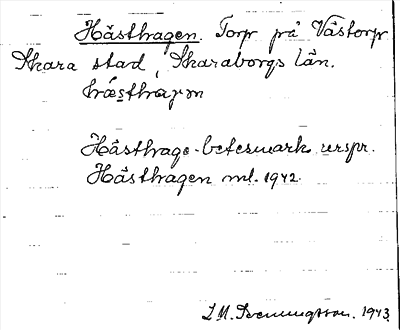 Hästhagen. Torp på Västorp
Skara stad, Skaraborgs län.
Hästhage-betesmark urspr.
Hästhagen ml. 1942.
L M. Svenungsson. 1943.